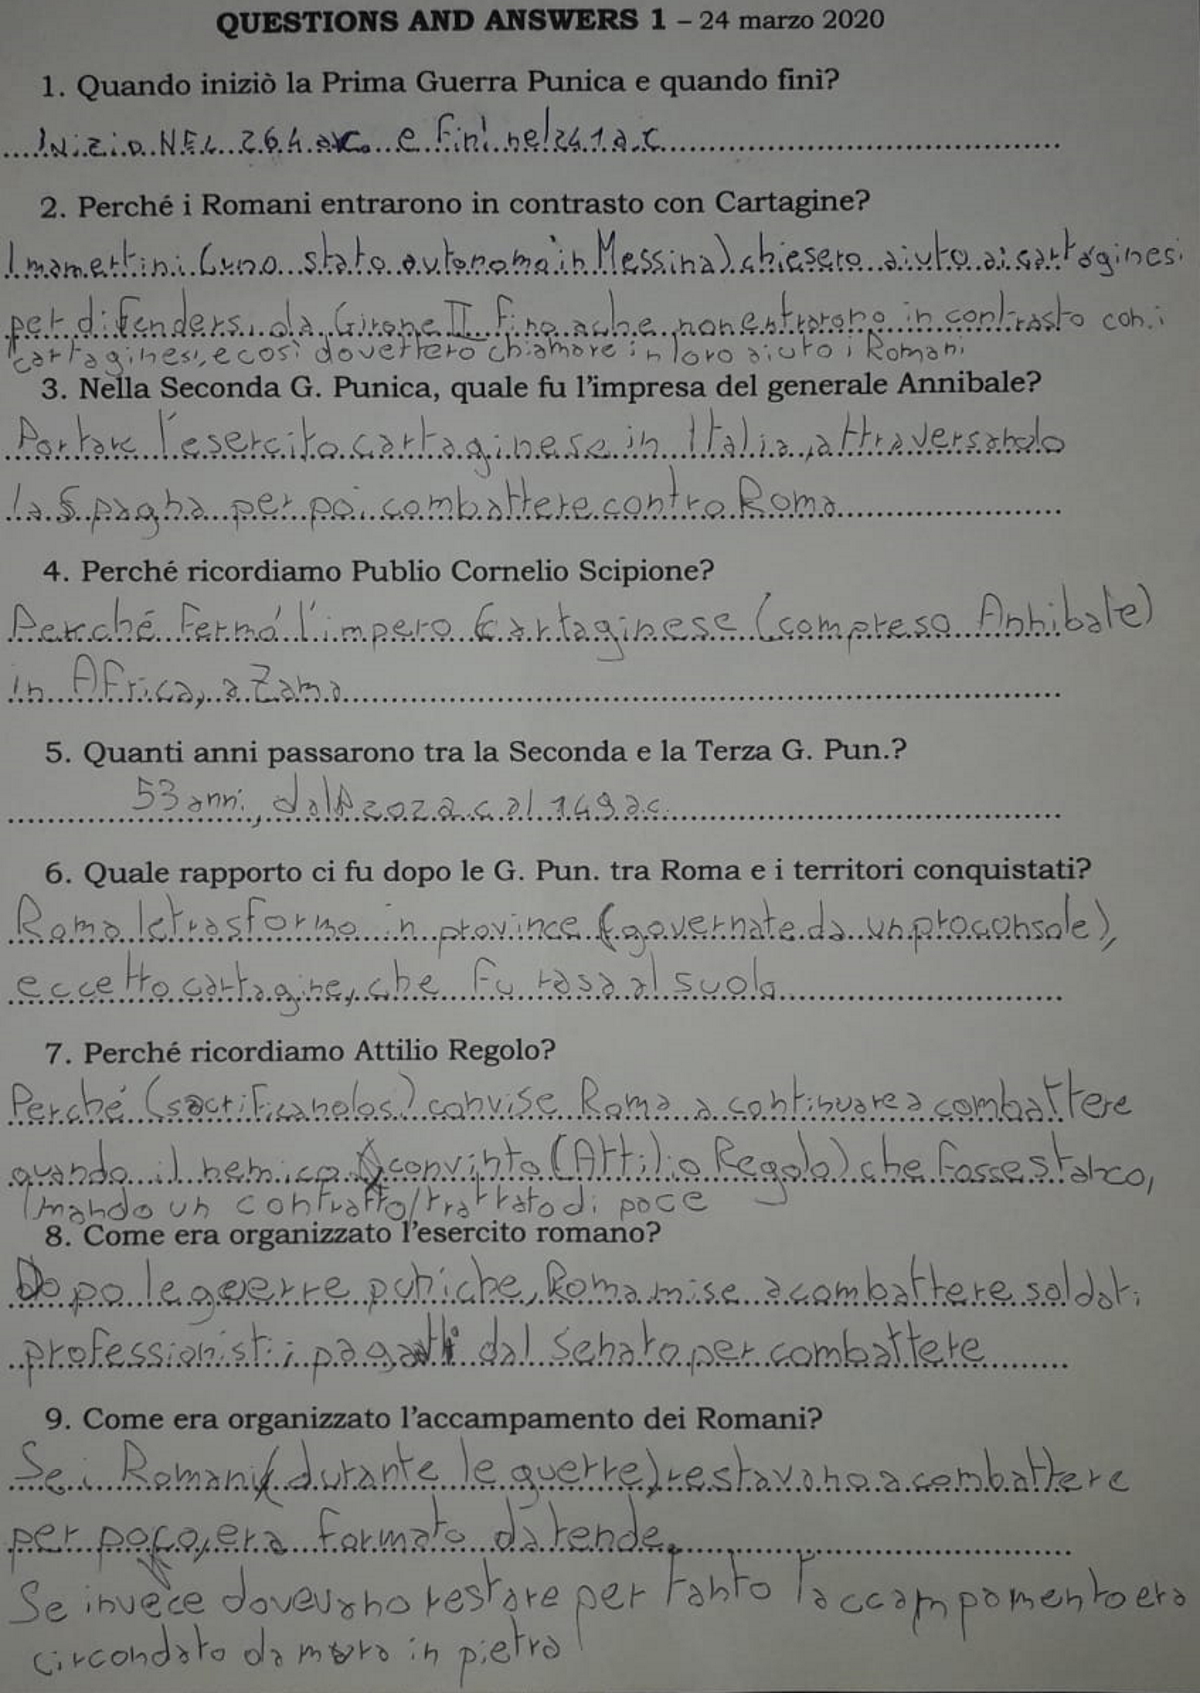 QUESTIONS AND ANSWERS 1 – 24 marzo 2020
1. Quando iniziò la Prima Guerra Punica e quando finì?
Inizio NEL 264 a.C. e finì nel 241 a.C.
2. Perché i Romani entrarono in contrasto con Cartagine?
I mamertini (uno stato autonomo in Messina) chiesero aiuto ai cartaginesi
per difendersi da Girone II fino a che non entrarono in contrasto con i
cartaginesi, e così dovettero chiamare in loro aiuto i Romani
3. Nella Seconda G. Punica, quale fu l'impresa del generale Annibale?
Portare l'esercito cartaginese in Italia, attraversando
la Spagna per poi combattere contro Roma
4. Perché ricordiamo Publio Cornelio Scipione?
Perché fermò l'impero Cartaginese (compreso Annibale)
in Africa, a Zama
5. Quanti anni passarono tra la Seconda e la Terza G. Pun.?
53 anni, dal 202 a.c. al 149 a.c.
6. Quale rapporto ci fu dopo le G. Pun. tra Roma e i territori conquistati?
Roma le trasformo in province (governate da un proconsole),
eccetto cartagine, che fu rasa al suolo
7. Perché ricordiamo Attilio Regolo?
Perché (sacrificandos) convise Roma a continuare a combattere
quando il nemico convinto (Attilio Regolo) che fosse stanco,
mando un contratto/trattato di pace
8. Come era organizzato l'esercito romano?
Dopo le guerre puniche, Roma mise a combattere soldati
professionisti; pagati dal senato per combattere
9. Come era organizzato l'accampamento dei Romani?
Se i Romani (durante le guerre) restavano a combattere
per poco, era formato da tende.
Se invece dovevano restare per tanto l'accampamento era
circondato da mura in pietra